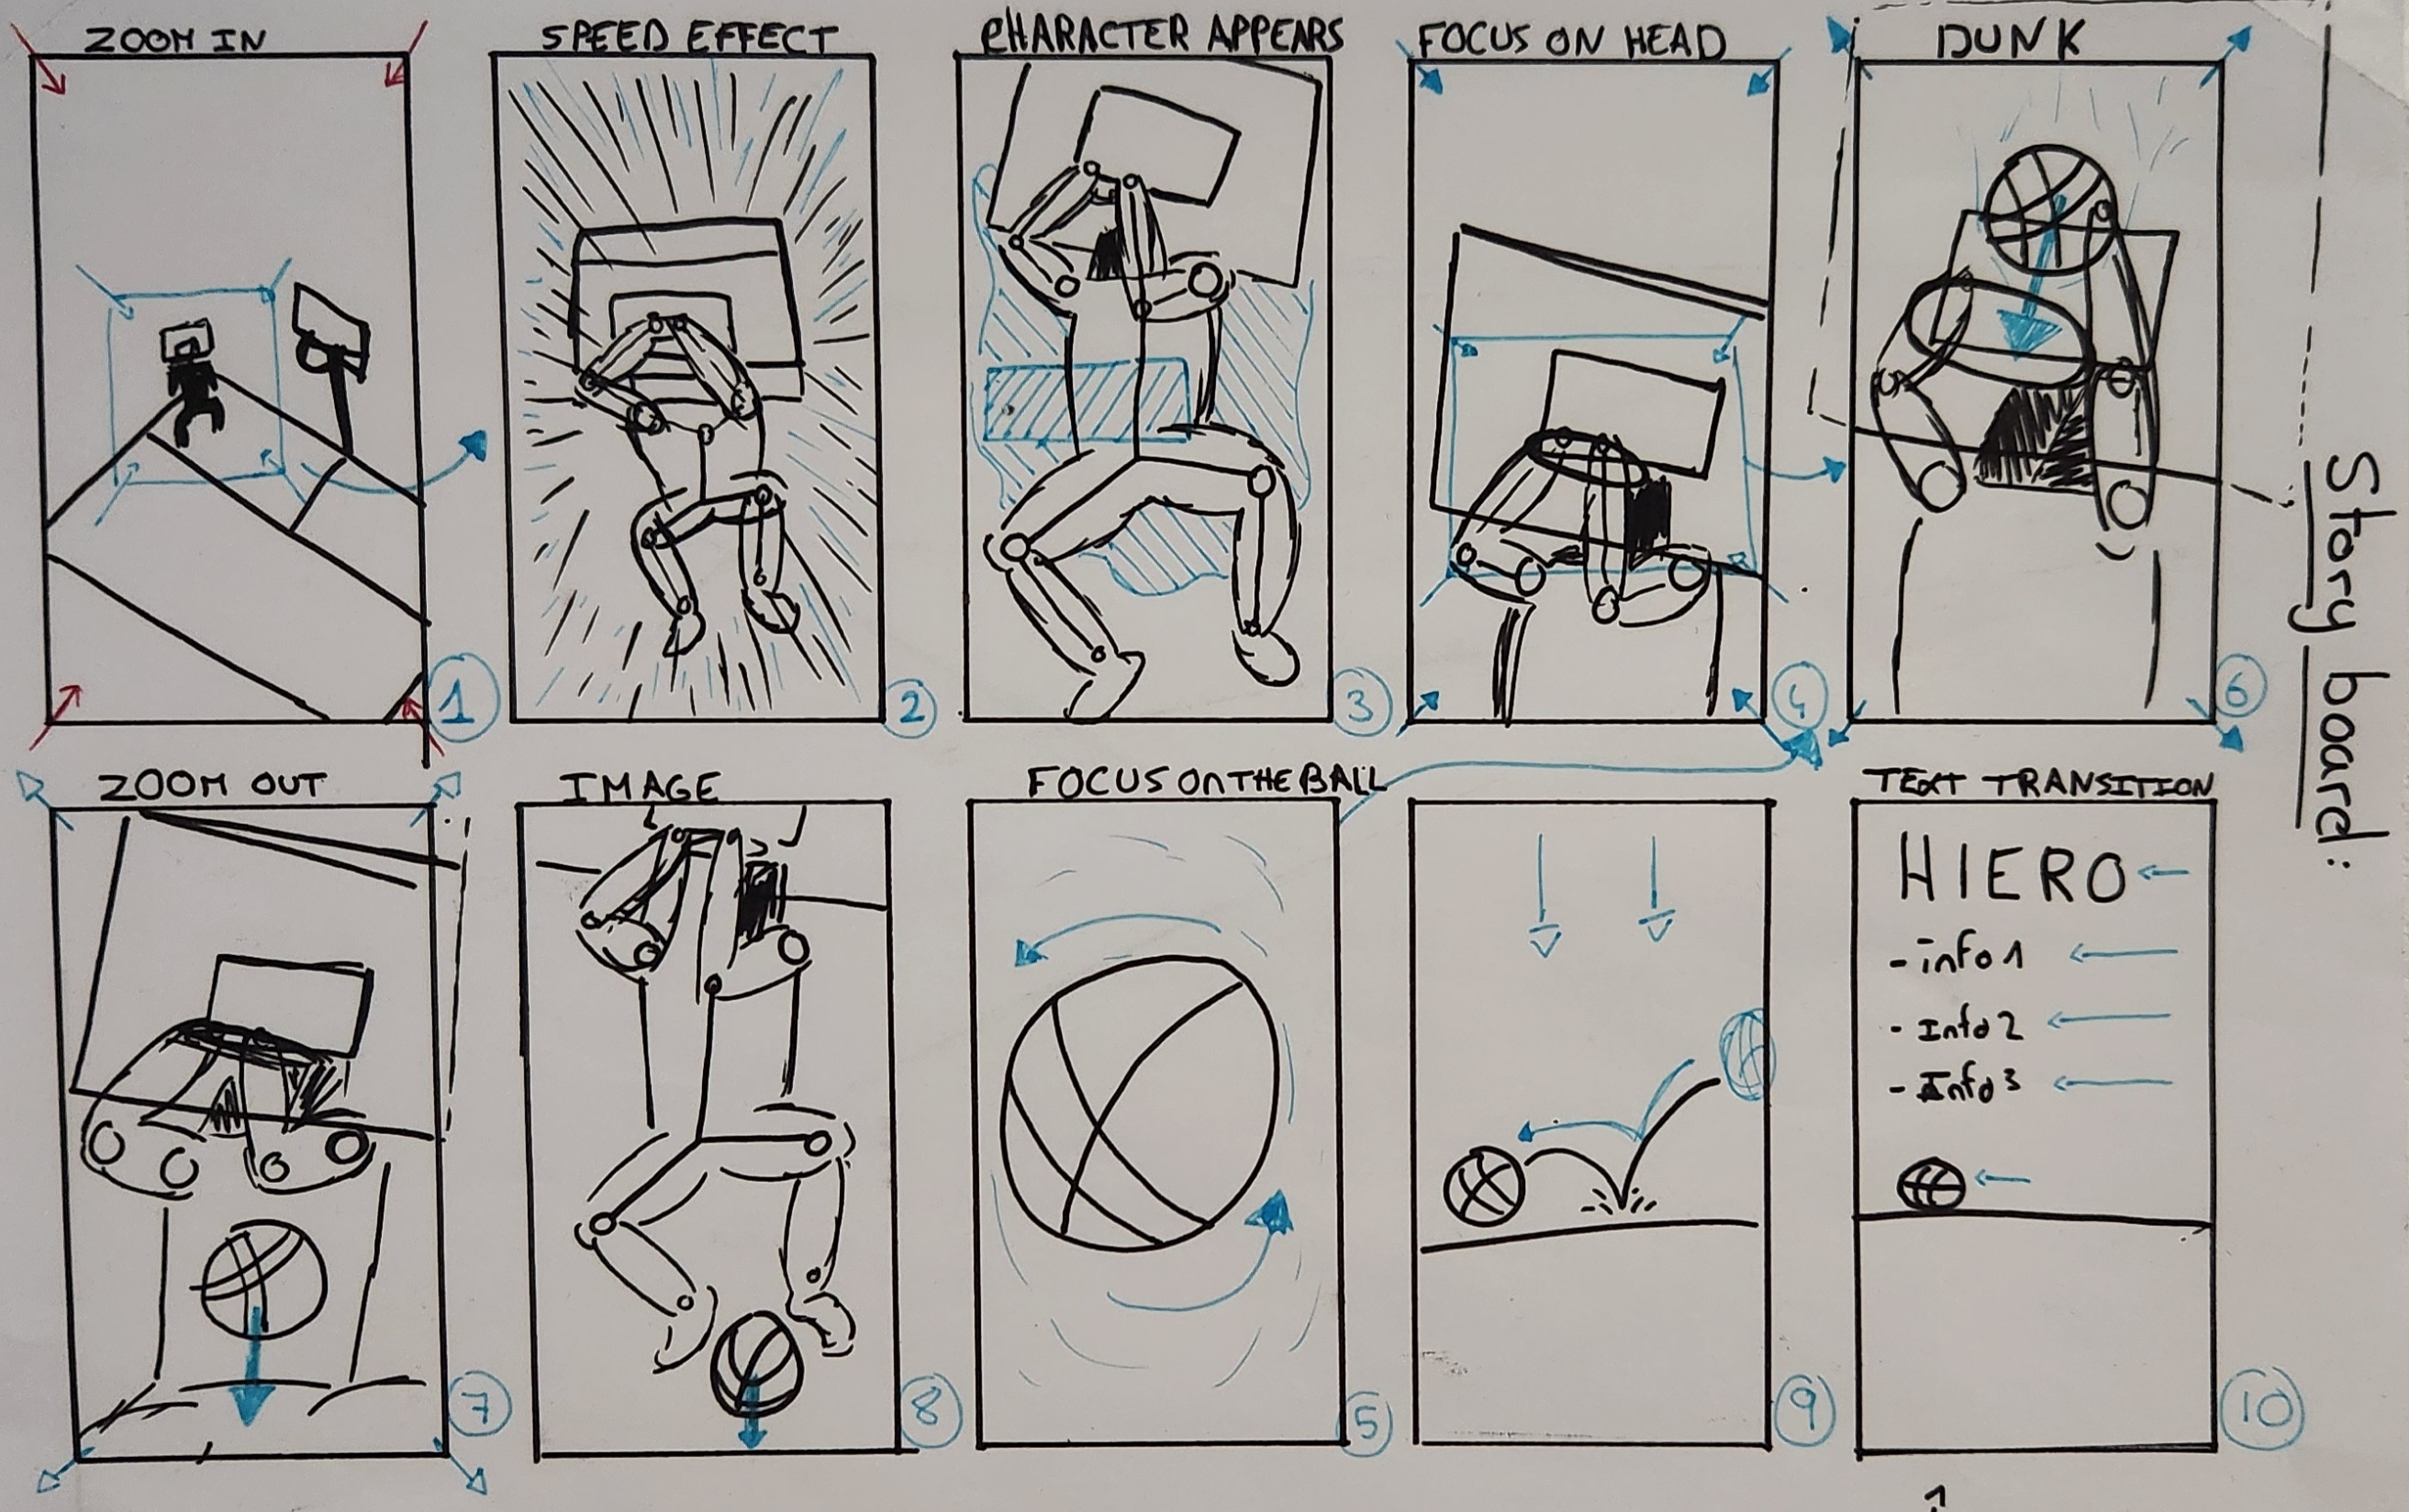 ZOOM IN
SPEED EFFECT
CHARACTER APPEARS
FOCUS ON HEAD
DUNK
1
2
3
4
6
Story board:
ZOOM OUT
IMAGE
FOCUS ON THE BALL
TEXT TRANSITION
HIERO
- info 1
- Info 2
- Info 3
7
8
5
9
10
1